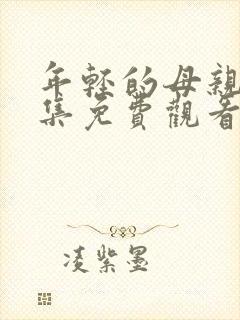 年輕的母親
集免費觀看
凌紫墨